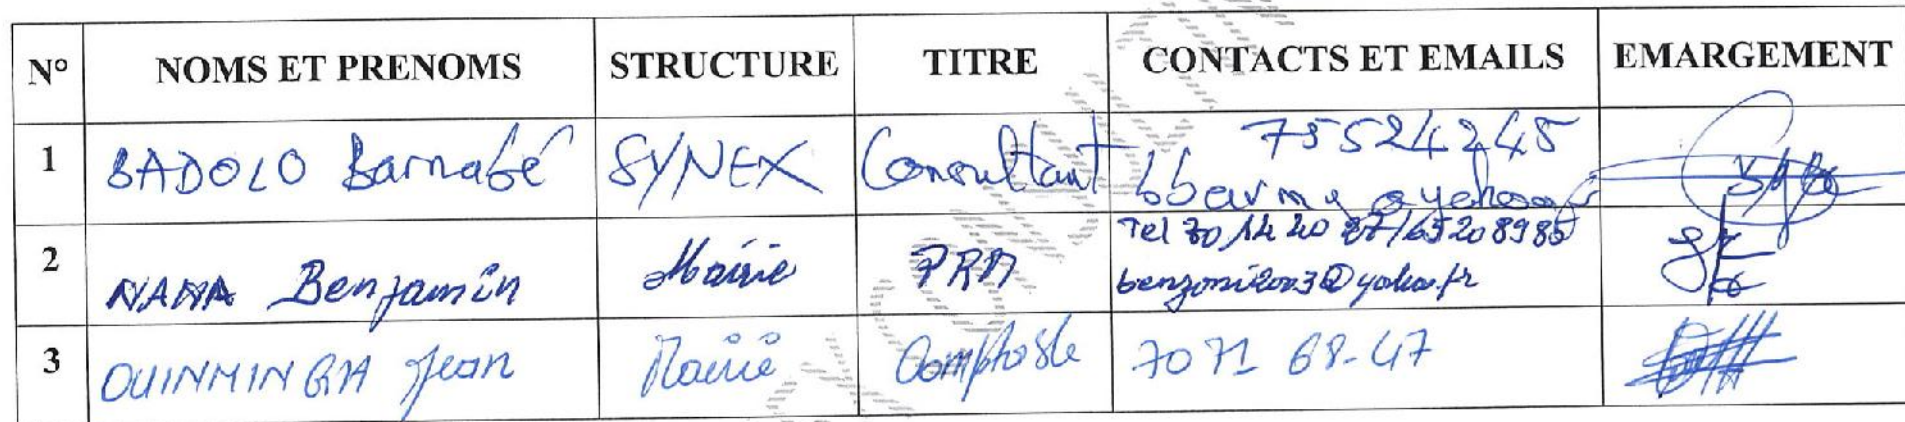 N° NOMS ET PRENOMS STRUCTURE TITRE CONTACTS ET EMAILS EMARGEMENT
1 BADOLO Barnabé SYNEX Consultant 75524245
2 NANA Benjamin Mairie PRM Tel 70 14 20 87/65208985
benzoni2003@yahoo.fr
3 OUINMINGA Jean Mairie Comptable 7071 68-47